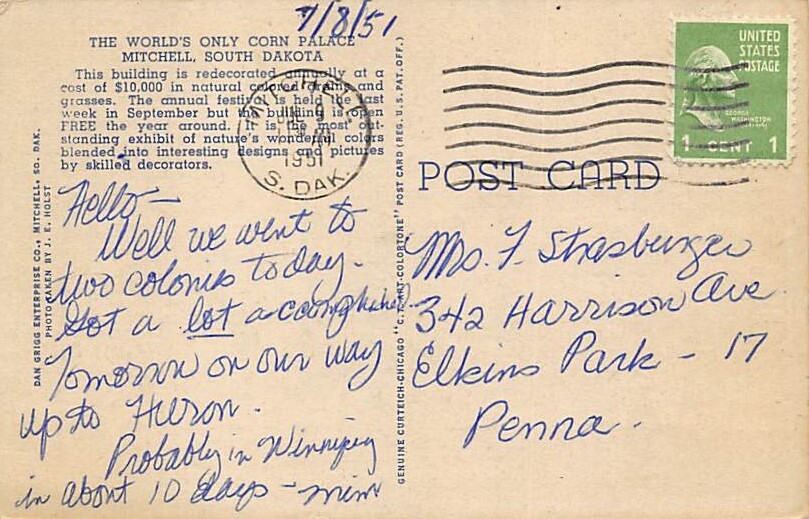 7/8/51
THE WORLD'S ONLY CORN PALACE
MITCHELL, SOUTH DAKOTA
This building is redecorated annually at a
cost of $10,000 in natural colored grains and
grasses. The annual festival is held the last
week in September but the building is open
FREE the year around. It is the most out-
standing exhibit of nature's wonderful colors
blended into interesting designs and pictures
by skilled decorators.
Hello—
Well we went to
two colonies today.
Got a lot accomplished.
Tomorrow on our way
up to Huron.
Probably in Winnipeg
in about 10 days - mim
DAN GRIGG ENTERPRISE CO., MITCHELL, SO. DAK.
PHOTO TAKEN BY J. E. HOLST
GENUINE CURTEICH-CHICAGO "C.T. ART-COLORTONE" POST CARD (REG. U.S. PAT. OFF.)
MITCHELL
1951
S. DAK.
UNITED
STATES
POSTAGE
GEORGE
WASHINGTON
1 CENT 1
POST CARD
Mrs. F. Strasburger
342 Harrison Ave
Elkins Park - 17
Penna.